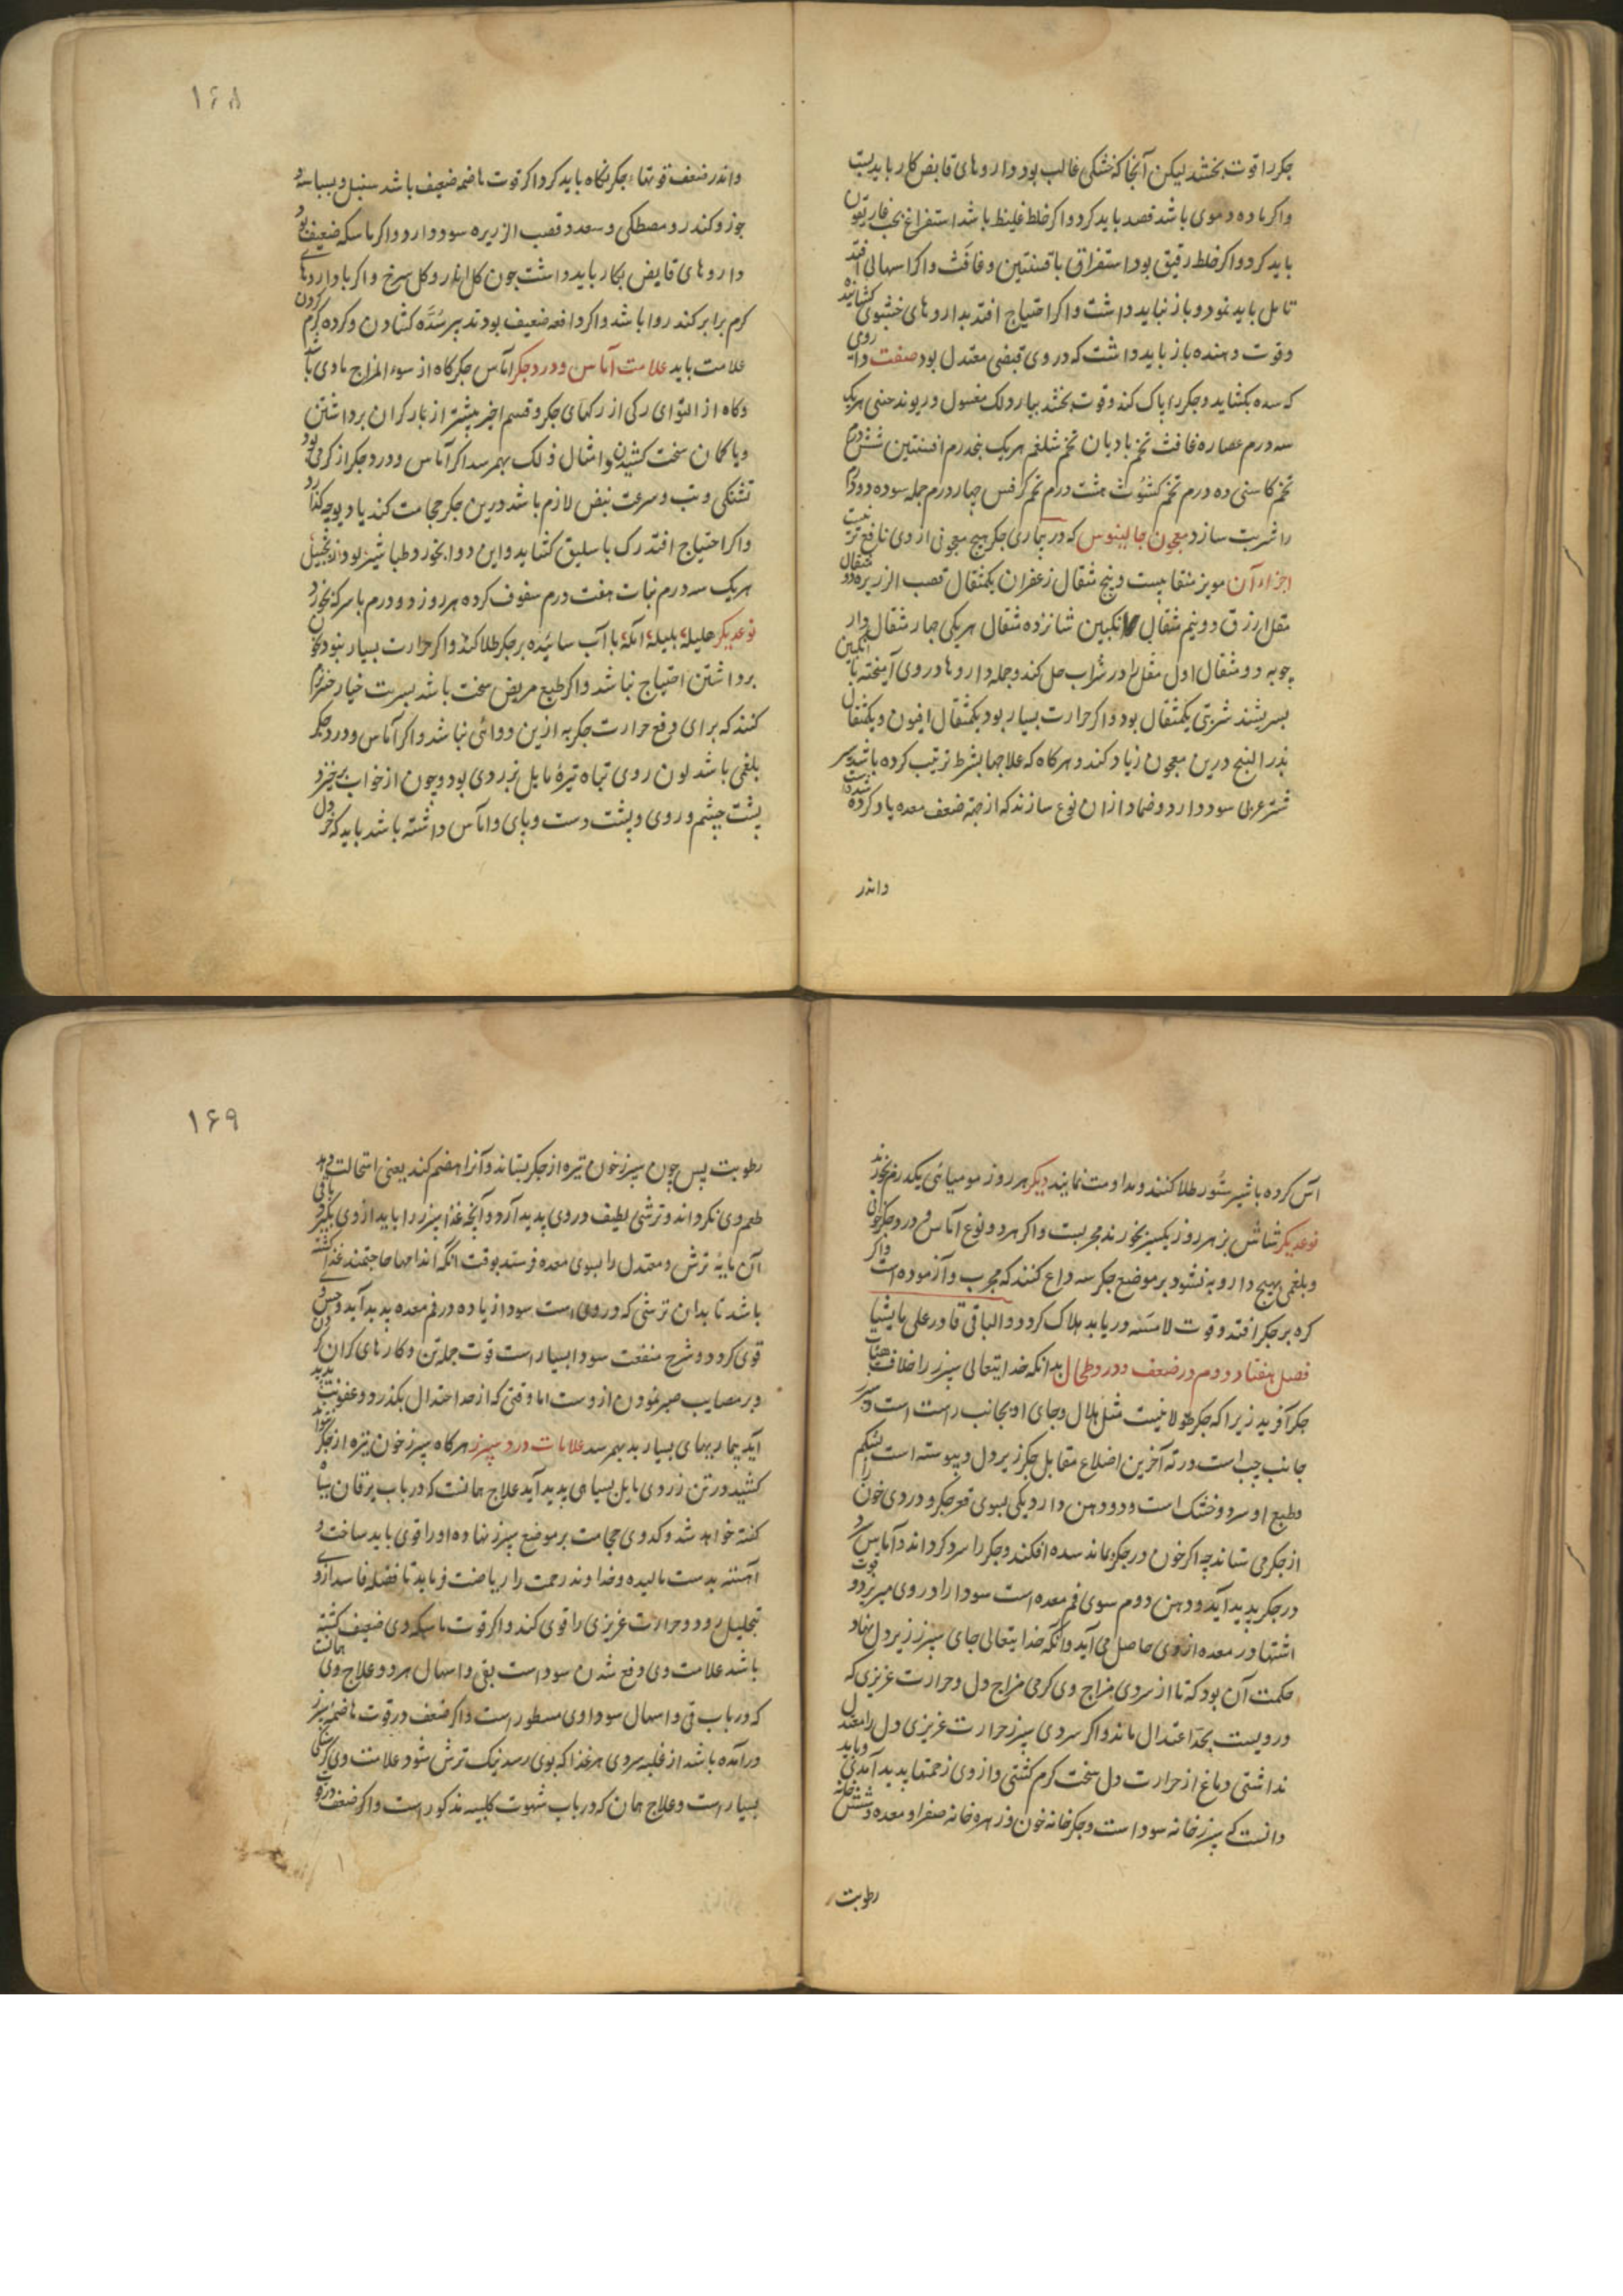 جکر را قوت بخشد لیکن آنجا که خشکی غالب بود داروهای قابض کار باید بست
واکر ماده دموی باشد فصد باید کرد واکر خلط غلیظ باشد استفراغ بحب غاریقون
باید کرد واکر خلط رقیق بود استفراق بافسنتین وغافث واکر اسهالی افتد
تامل باید نمود وباز نباید داشت واکر احتیاج افتد بداروهای خشبوی کشاینده
وقوت دهنده باز باید داشت که در وی قبضی معتدل بود صفت داروی
که سده بکشاید وجکر را پاک کند وقوت بخشد بیارد لک مغسول وریوند چینی هریک
سه درم عصاره غافث تخم بادیان تخم شلغم هریک پنجدرم افسنتین شش درم
تخم کاسنی ده درم تخم کشوث هشت درم تخم کرفس چهار درم جمله سوده دو درم
را شربت سازد معجون جالینوس که در بیماری جکر هیچ معجونی از وی نافع تر نیست
اجزاء آن مویز منقا بیست وپنج مثقال زعفران یکمثقال قصب الزریره دو مثقال
مقل ارزق دو نیم مثقال انکبین شانزده مثقال هریکی چهار مثقال دار
چوبه دو مثقال اول مقل را در شراب حل کند وجمله داروها در وی آمیخته با انکبین
بسریشند شربتی یکمثقال بود واکر حرارت بسیار بود یکمثقال افیون ویکمثقال
بذر البنج درین معجون زیاد کند وهرکاه که علاجها بشرط ترتیب کرده باشد شیر
شتر عربی سود دارد وضماد ازان نوع سازند که از جهة ضعف معده یاد کرده شده است
واندر
۱۶۸
واندر ضعف قوتهاء جکر نکاه باید کرد اکر قوت هاضمه ضعیف باشد سنبل وبسباسه و
جوز وکندر ومصطکی وسعد وقصب الزریره سود دارد واکر ماسکه ضعیف بود
داروهای قابض بکار باید داشت چون کلنار وکل سرخ واکر با داروهای
کرم برابر کند روا باشد واکر دافعه ضعیف بود تدبیر سُدّه کشادن وکرده کرم کردن
علامت باید علامت آماس ودرد جکر آماس جکر کاه از سوء المزاج مادی باشد
وکاه از التوای رکی از رکهای جکر وقسم اخیر بیشتر از بار کران برداشتن
ویا کمان سخت کشیدن وامثال ذلک بهم رسد اکر آماس ودرد جکر از کرمی بود
تشنکی وتب وسرعت نبض لازم باشد درین جکر حجامت کند یا دیوچه کذارد
واکر احتیاج افتد رک باسلیق کشاید واین دوا بخورد طباشیر لودر زنجبیل
هریک سه درم نبات هفت درم سفوف کرده هر روز دو درم با سرکه بخورد
نوعدیکر هلیله بلیله آمله با آب سائیده بر جکر طلا کند واکر حرارت بسیار نبود بخون
برداشتن احتیاج نباشد واکر طبع مریض سخت باشد بسربت خیار چنبر نرم
کنند که برای دفع حرارت جکر به ازین دوائی نباشد واکر آماس ودرد جکر
بلغمی باشد لون روی تباه تیرهٔ مایل بزردی بود وچون از خواب برخیزد
پشت چشم وروی وپشت دست وپای وآماس داشته باشد باید که خردل
آس کرده با شیر ستور طلا کنند ومداومت نمایند دیکر هر روز مومیائی یکدرم بخورند
نوعدیکر شاش بز هر روز یکسیر بخورند مجربست واکر هر دو نوع آماس ودرد جکر خونی
وبلغمی بهیچ دارو به نشود بر موضع جکر سه داغ کنند که مجرب وآزموده است واکر
کره بر جکر افتد وقوت لامسه دریابد هلاک کردد والباقی قادر علی ما یشاء
فصل هفتاد ودوم در ضعف ودرد طحال بدانکه خدایتعالی سپرز را خلاف هیئات
جکر آفرید زیرا که جکر طولانیست مثل هلال وجای او بجانب راست است وسپرز
جانب چپ است در ته آخرین اضلاع مقابل جکر زیر دل وپیوسته است بشکم
وطبع او سرد وخشک است ودو دهن دارد یکی بسوی قعر جکر ودردی خون را
از جکر می ستاند چه اکر خون در جکر بماند سده افکند وجکر را سرد کرداند وآماس
در جکر پدید آید ودهن دوم سوی فم معده است سودا را در وی میریزد وقوت
اشتها در معده از وی حاصل می آید وآنکه خدایتعالی جای سپرز زیر دل نهاد
حکمت آن بود که تا از سردی مزاج وی کرمی مزاج دل وحرارت غریزی که
درویست بحد اعتدال ماند واکر سردی سپرز حرارت غریزی دل را معتدل
نداشتی دماغ از حرارت دل سخت کرم کشتی واز وی زحمتها پدید آمدی وباید
دانست که سپرز خانه سودا است وجکر خانه خون وزهره خانه صفرا ومعده وشش خانه
رطوبت
۱۶۹
رطوبت پس چون سپرز خون تیره از جکر بستاند وآنرا هضم کند یعنی استحالت دهد
طعم وی بکرداند وترشی لطیف در وی پدید آرد وآنچه غذا سپرز را باید از وی بکیرد باقی
آن مایهٔ ترش ومعتدل را بسوی معده فرستد بوقت آنکه اندامها حاجتمند غذا کشته
باشد تا بدان ترشی که در وی است سودا زیاده در فم معده پدید آید وحس وی
قوی کردد وشرح منفعت سودا بسیار است قوت جمله تن وکارهای کران کردن
وبر مصایب صبر نمودن ازوست اما وقتی که از حد اعتدال بکذرد وعفونت پدید
آید بیماریهای بسیار بد بهمرسد علامات درد سپرز هرکاه سپرز خون تیره از جکر نتواند
کشید در تن زردی مایل بسیاهی پدید آید علاج همانست که در باب یرقان سیاه
کفته خواهد شد وکدوی حجامت بر موضع سپرز نهاده او را قوی باید ساخت و
آهسته بدست مالیده وخداوند زحمت را ریاضت فرماید تا فضله فاسد از وی
بتحلیل رود وحرارت غریزی را قوی کند واکر قوت ماسکه وی ضعیف کشته
باشد علامت وی دفع شدن سوداست بقی واسهال هر دو وعلاج وی همانست
که در باب قی واسهال سوداوی مسطور است واکر ضعف در قوت هاضمه سپرز
درآمده باشد از غلبه سردی هر غذا که بوی رسد نیک ترش شود علامت وی کرسنکی
بسیار است وعلاج همان که در باب شهوت کلبیه مذکور است واکر ضعف در قوت